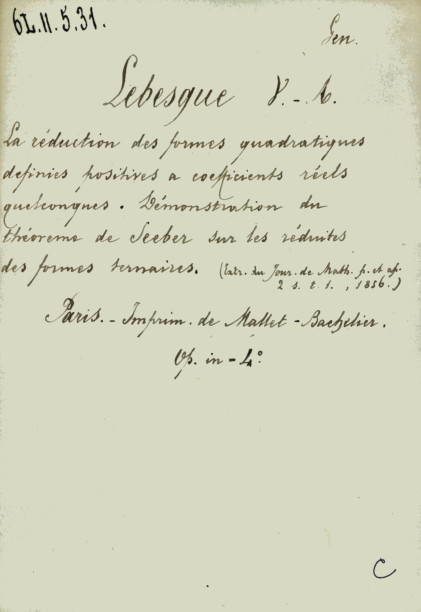 6L.II.5.31.
Gen.
Lebesgue V. - A.
La réduction des formes quadratiques
definies positives a coefficients réels
quelconques. Démonstration du
théoreme de Seeber sur les réduites
des formes ternaires. (Extr. du Jour. de Math. p. et ap.
2 s. t. 1., 1856.)
Paris. - Imprim. de Mallet - Bachelier.
Op. in - 4.º
C